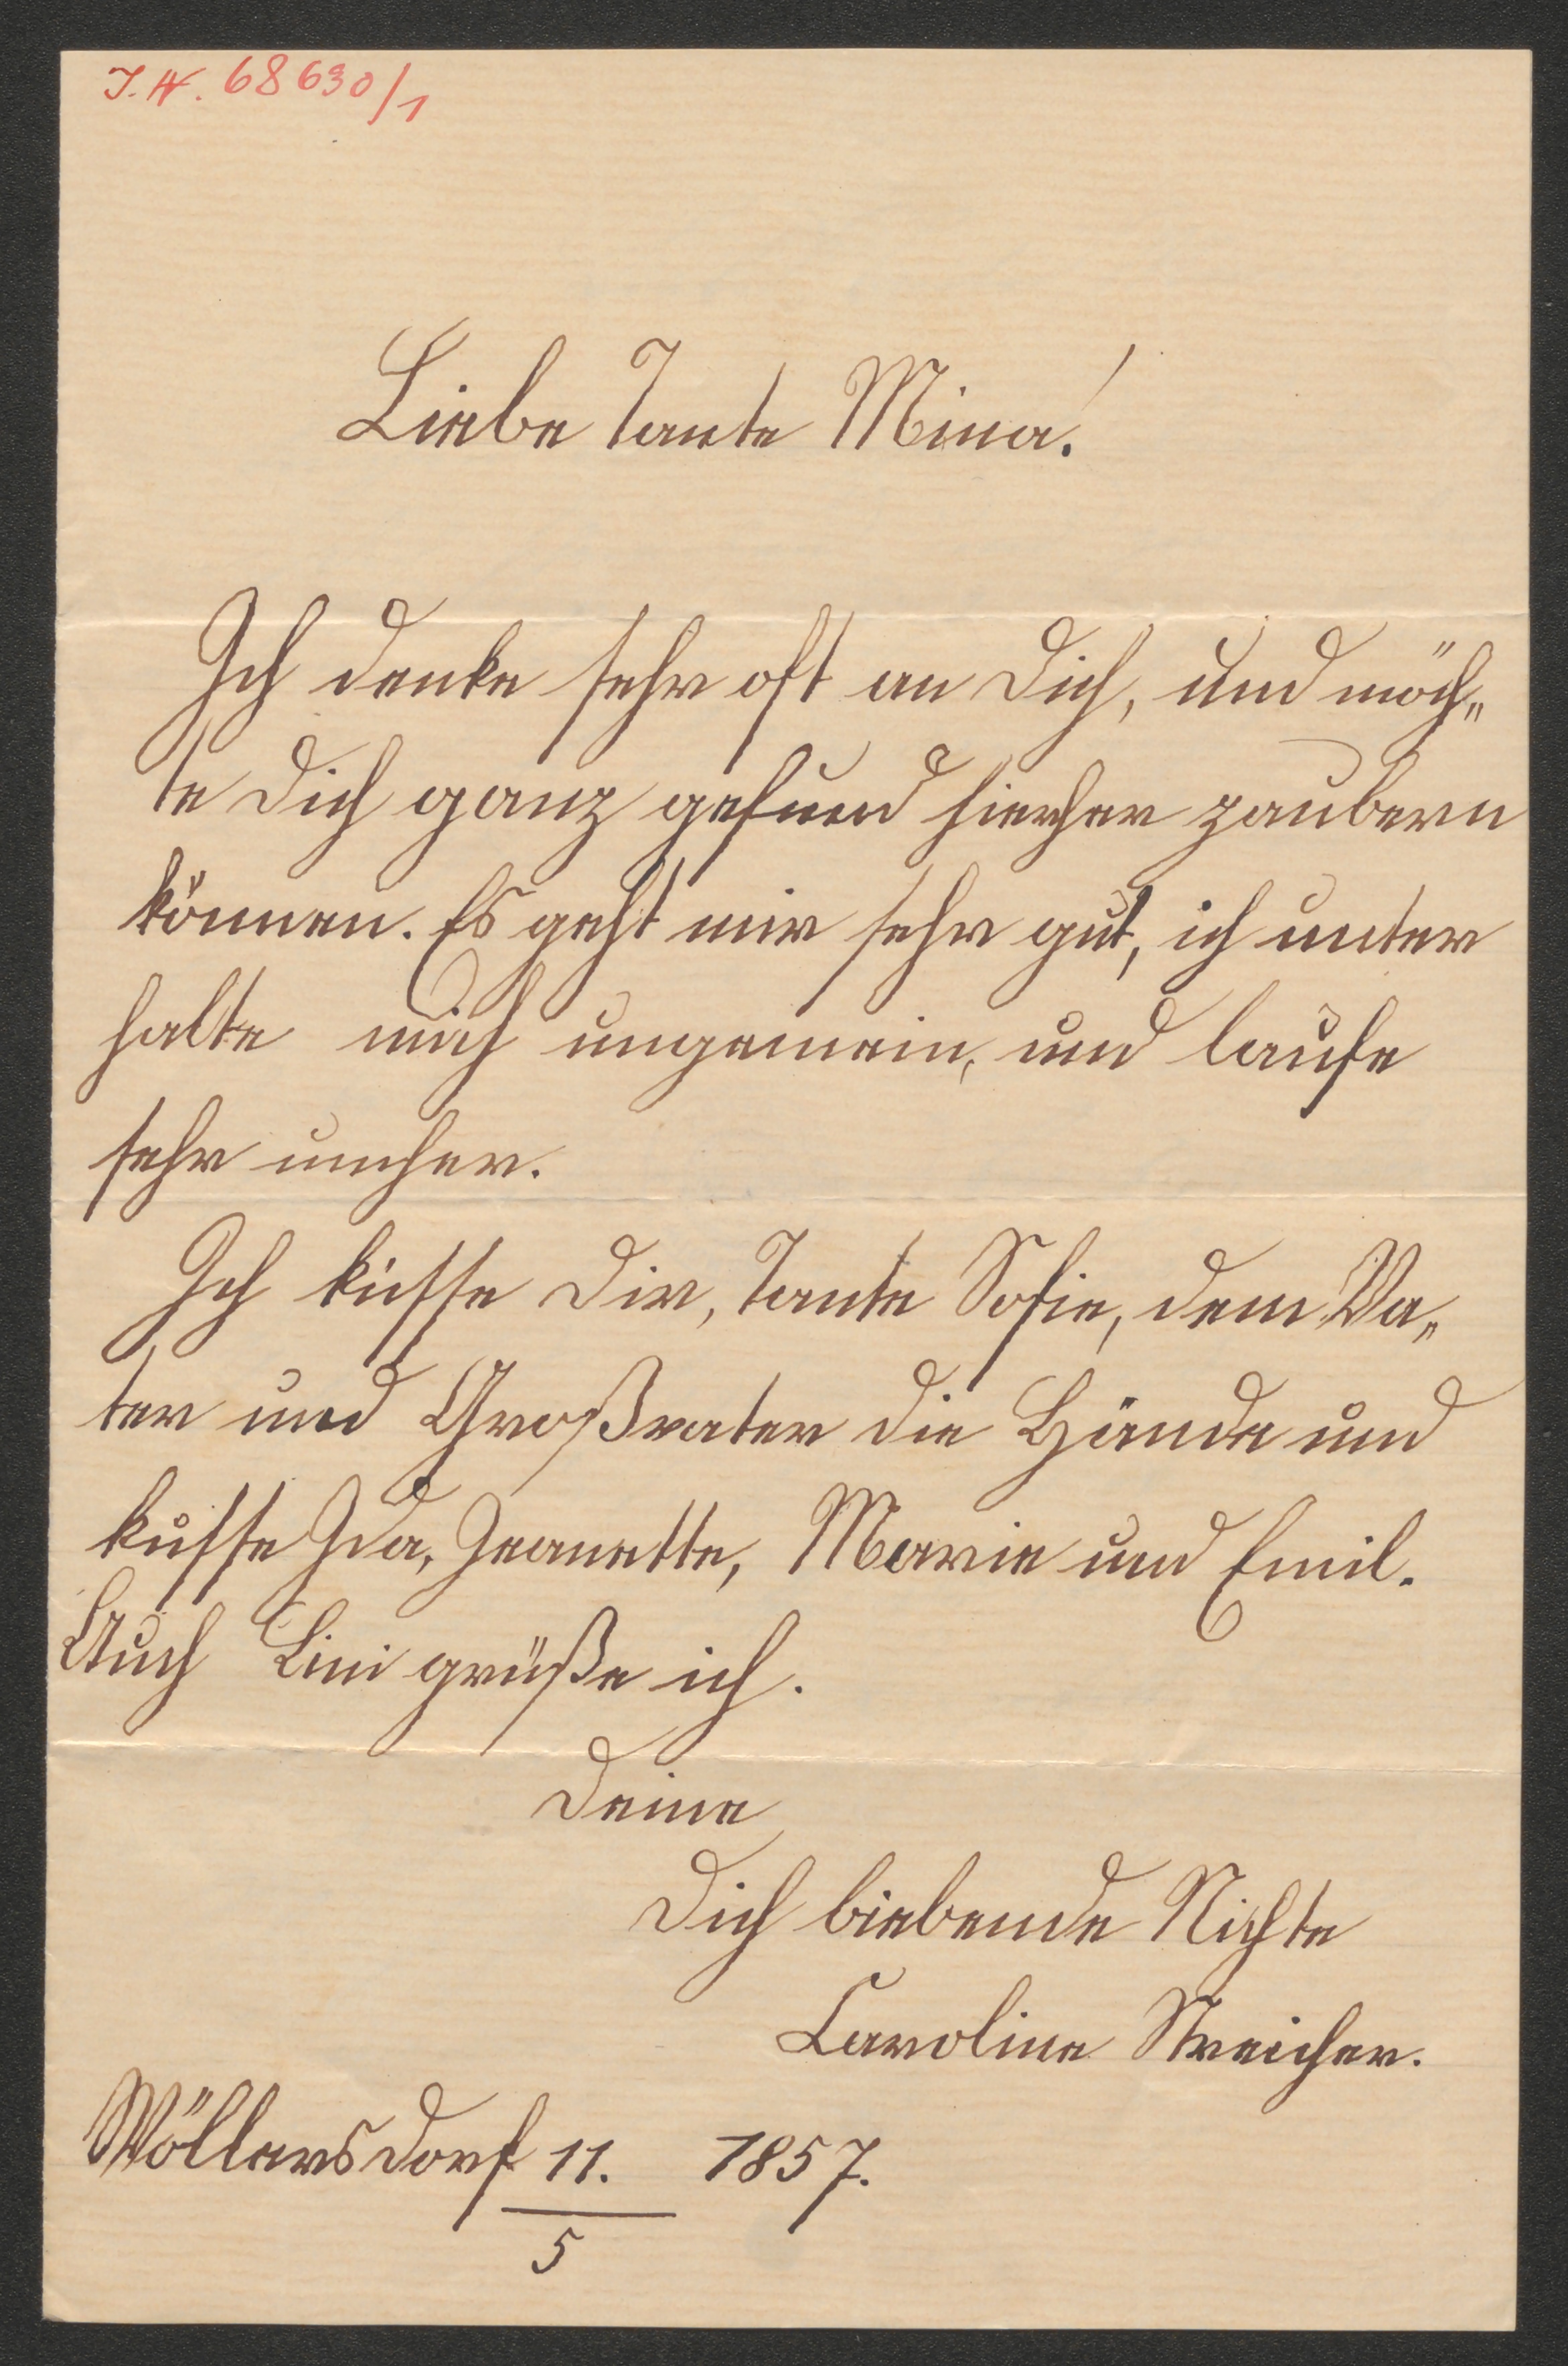 I.N. 68630/1
Liebe Tante Mina!
Ich denke sehr oft an Dich, und möch„
te Dich ganz gesund hierher zaubern
können. Es geht mir sehr gut, ich unter
halte mich ungemein, und laufe
sehr umher.
Ich küsse Dir, Tante Sofie, dem Va„
ter und Großvater die Hände und
küsse Ida, Jeanette, Marie und Emil.
Auch Lini grüße ich.
Deine
Dich liebende Nichte
Caroline Streicher.
Wöllersdorf 11. 1857.
5